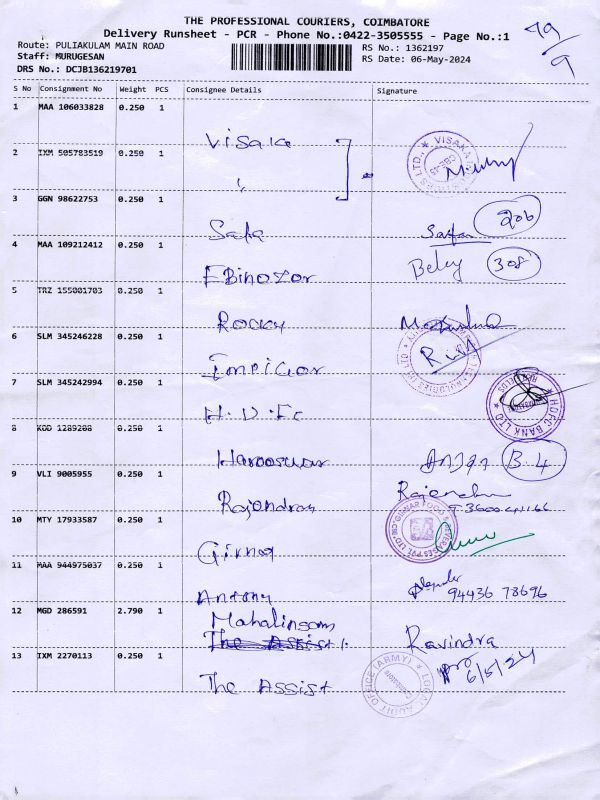 THE PROFESSIONAL COURIERS, COIMBATORE
Delivery Runsheet - PCR - Phone No.:0422-3505555 - Page No.:1
79/9
Route: PULIAKULAM MAIN ROAD
RS No.: 1362197
Staff: MURUGESAN
RS Date: 06-May-2024
DRS No.: DCJB136219701
S No Consignment No Weight PCS Consignee Details Signature
1 MAA 106033828 0.250 1
Visaka
2 IXM 505783519 0.250 1
3 GGN 98622753 0.250 1
206
4 MAA 109212412 0.250 1
Ebinozor
308
5 TRZ 155001703 0.250 1
Rocky
6 SLM 345246228 0.250 1
7 SLM 345242994 0.250 1
H.D.Fc
HDFC BANK LTD
8 KOD 1289208 0.250 1
B.4
9 VLI 9005955 0.250 1
Rajendran
10 MTY 17933587 0.250 1
11 MAA 944975037 0.250 1
Antony
94436 78696
12 MGD 286591 2.790 1
Mahalingam
The Assist
Ravindra
13 IXM 2270113 0.250 1
6/5/24
The Assist
LOCAL AUDIT OFFICE (ARMY)